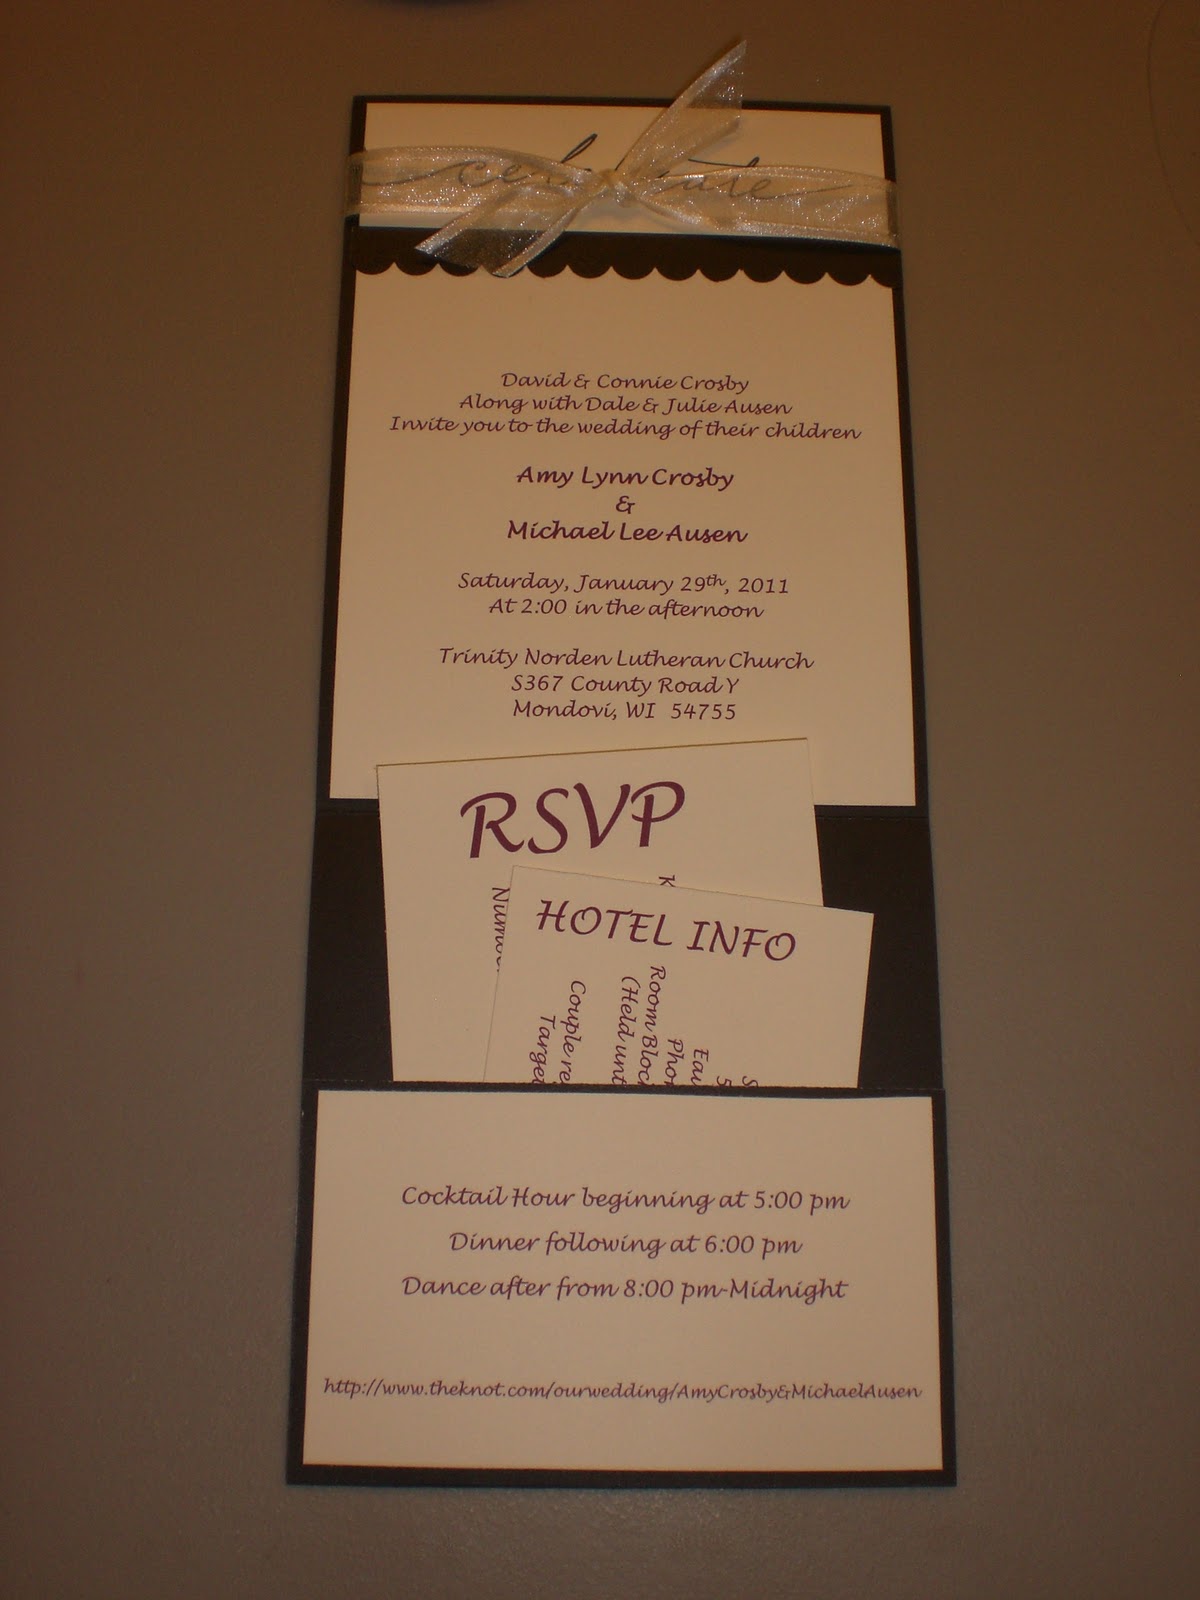 celebrate
David & Connie Crosby
Along with Dale & Julie Ausen
Invite you to the wedding of their children
Amy Lynn Crosby
&
Michael Lee Ausen
Saturday, January 29th, 2011
At 2:00 in the afternoon
Trinity Norden Lutheran Church
S367 County Road Y
Mondovi, WI 54755
RSVP
K
HOTEL INFO
S
5
Eau
Phon
Room Bloc
(Held unt
Couple re
Target
Cocktail Hour beginning at 5:00 pm
Dinner following at 6:00 pm
Dance after from 8:00 pm-Midnight
http://www.theknot.com/ourwedding/AmyCrosby&MichaelAusen